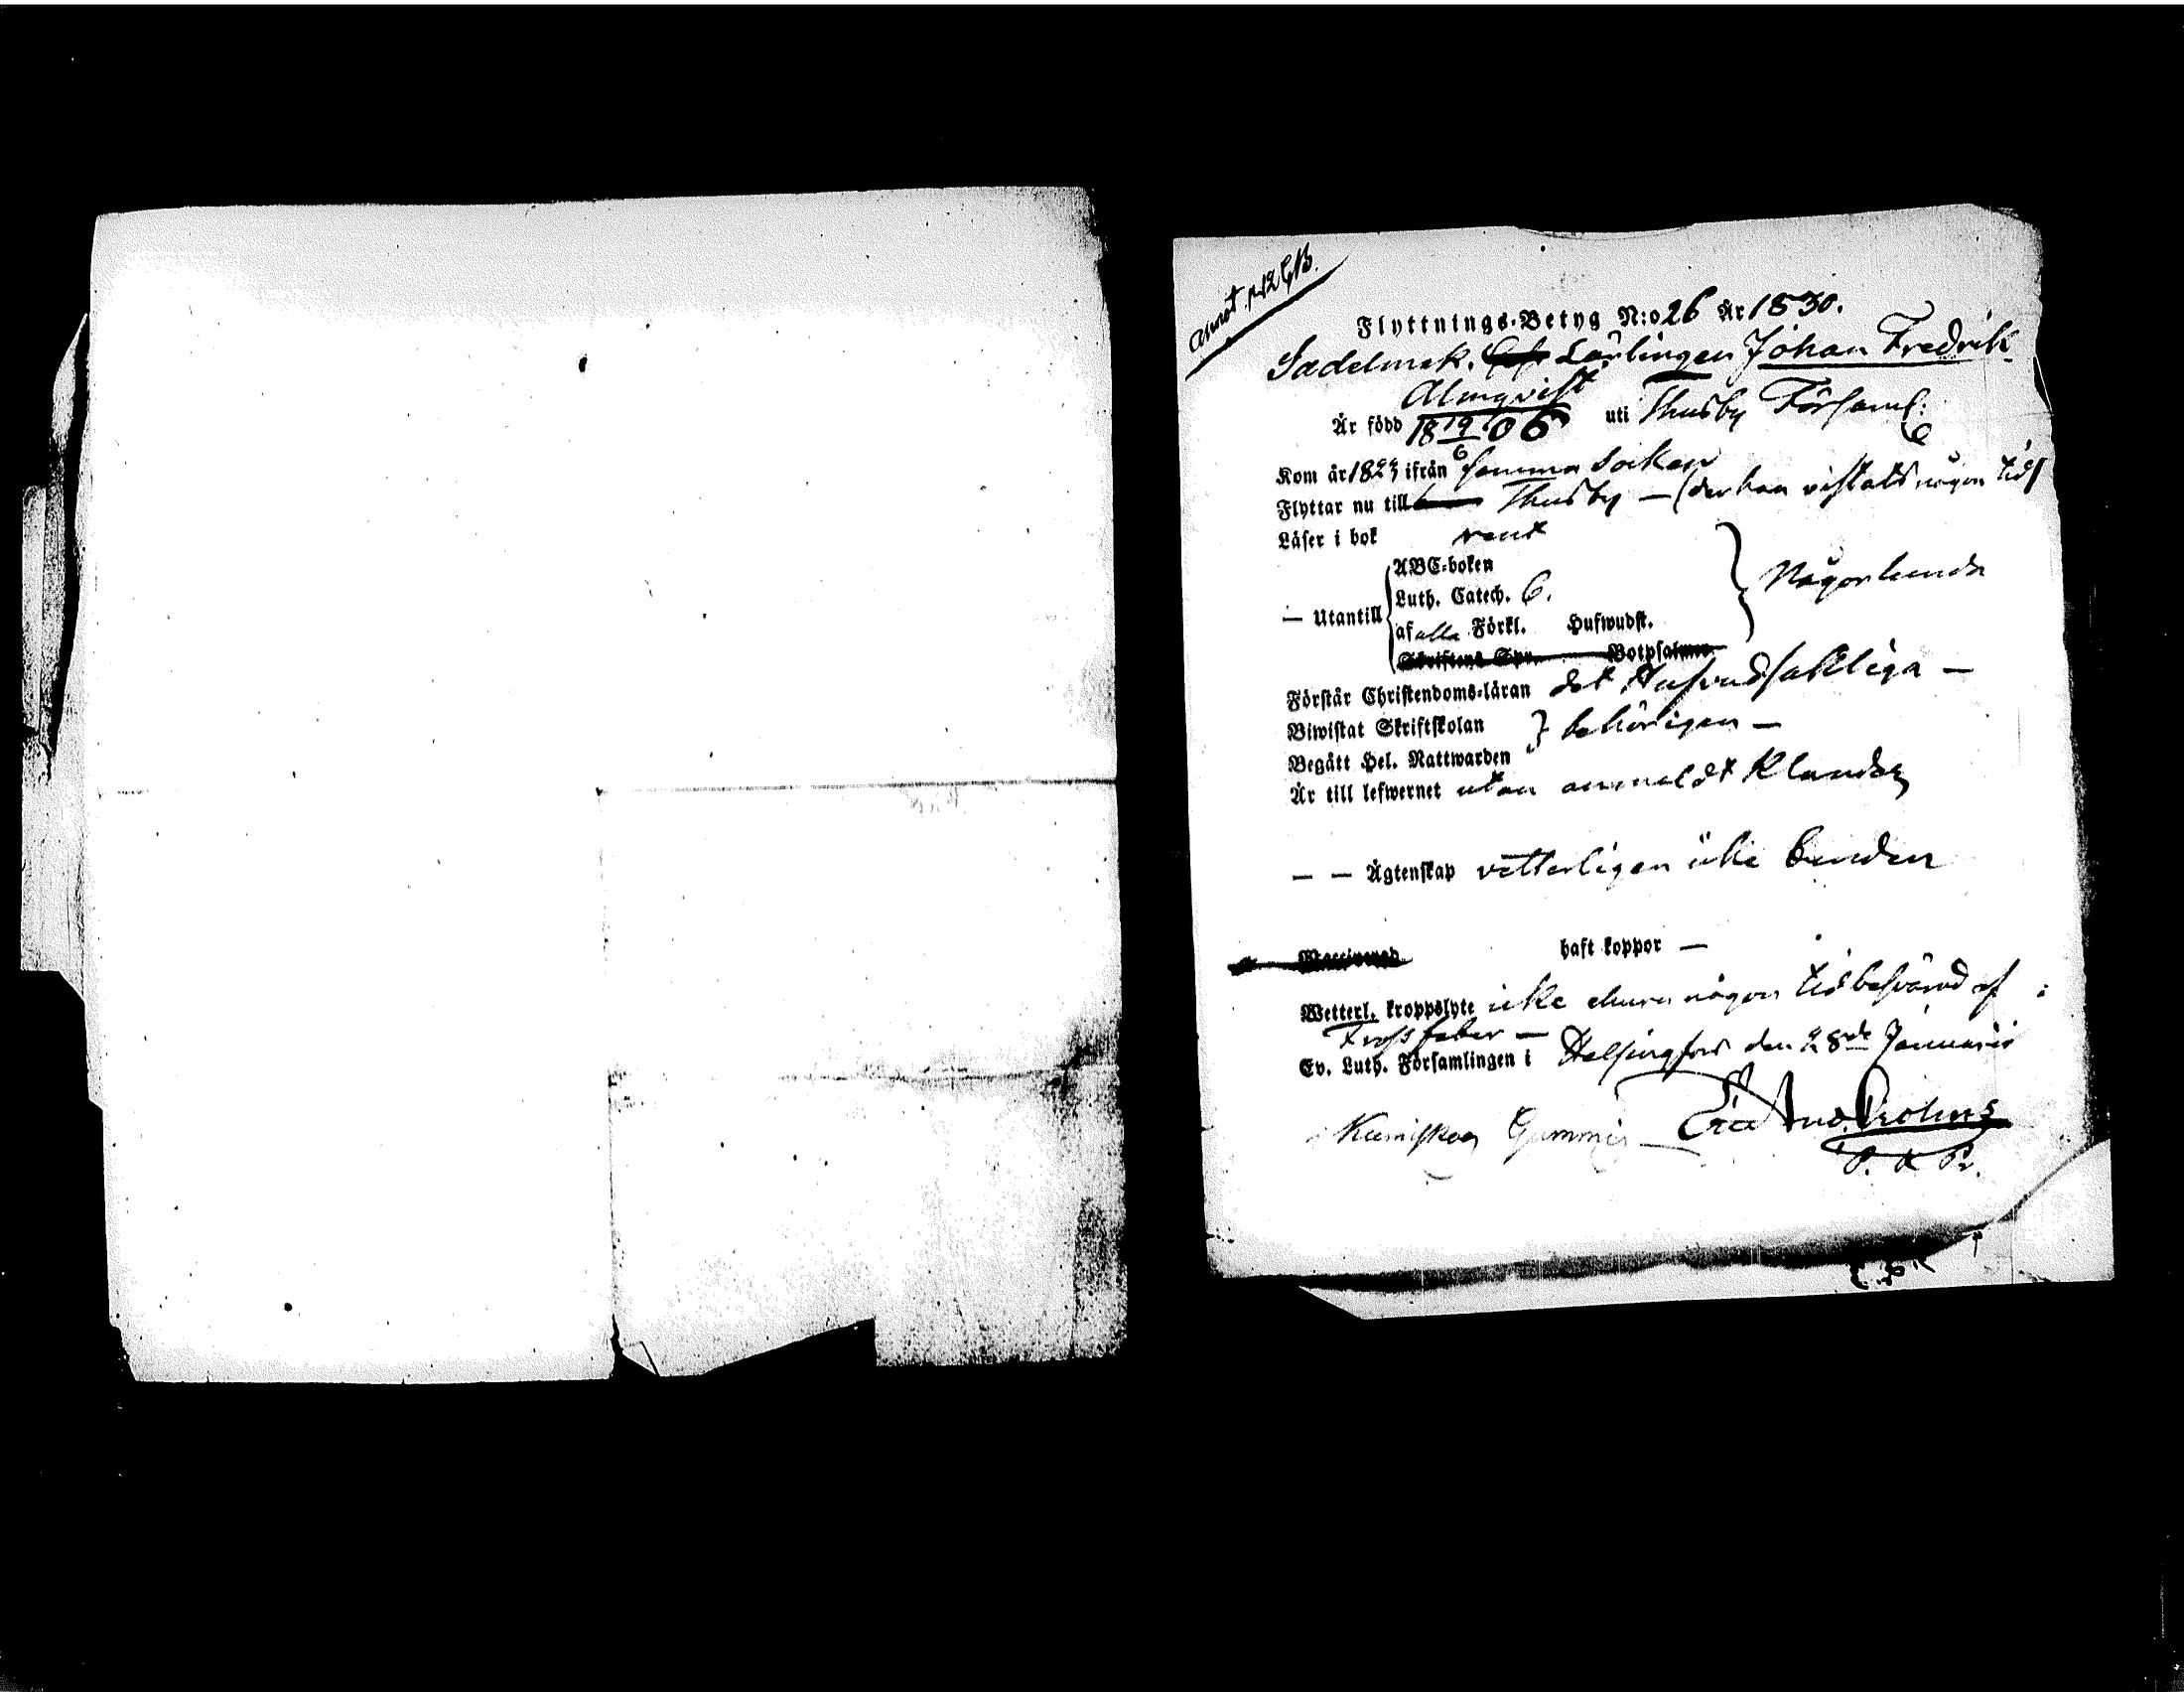 Flyttnings-Betyg N:o 26 År 1830.
Sadelmak. Lärlingen Johan Fredrik
Almqvist
Är född 18 19/6 06 uti Thusby Församl:
Kom år 1823 ifrån samma Socken
Flyttar nu till Thusby — (der han vistats någon tid)
Läser i bok rent
ABC-boken
Luth. Catech. 6.
— Utantill
af alla Förkl. Hufwudst.
Någorlunda
Skriftens Spr. Botpsalmer
Förstår Christendoms-läran det Hufvudsakliga —
Biwistat Skriftskolan
behörigen —
Begått Hel. Nattwarden
Är till lefwernet utan anmeldt klander
— — Ägtenskap vetterligen icke bunden
Waccinerad haft koppor —
Wetterl. kroppslyte icke ehuru någon tid besvärad af
Frossfeber —
Ev. Luth. Församlingen i Helsingfors den 28de Januarii
Gummi
P. K Pr.